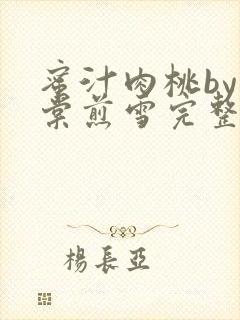 蜜汁肉桃by
棠煎雪完整
楊長亞